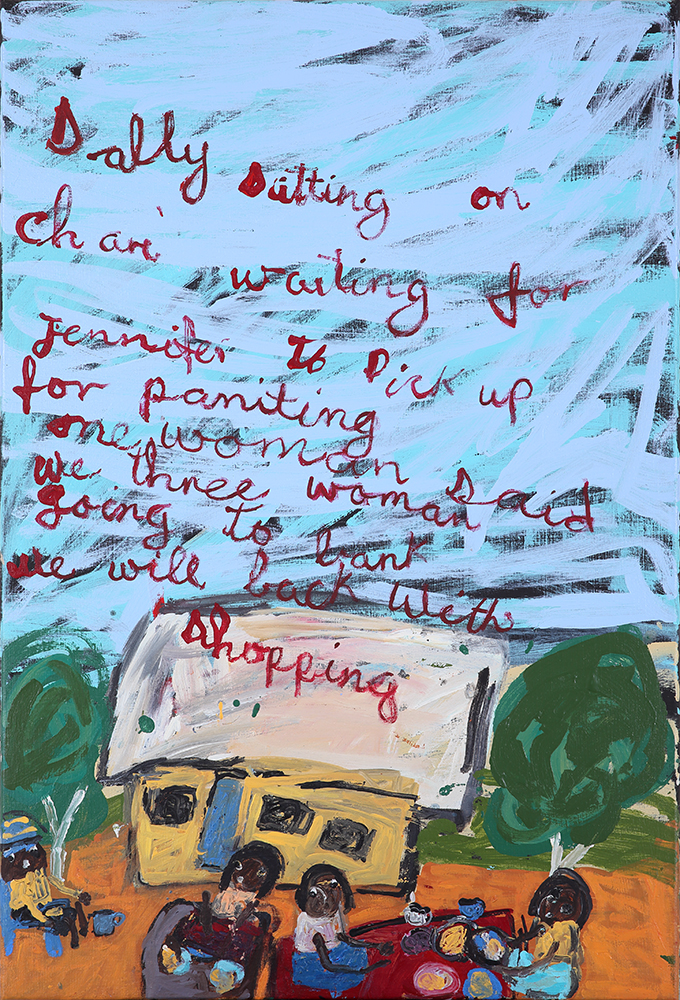 Sally sitting on
chari waiting for
Jennifer to pick up
for paniting
one woman said
we three woman
going to bant
we will back with
shopping